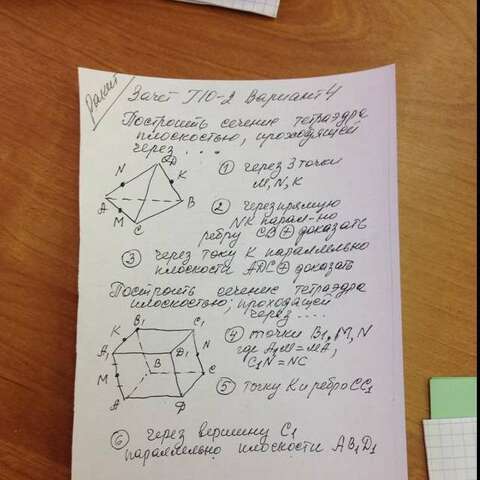 Зачет ПЮ-2 Вариант 4
Построить сечение тетраэдра
плоскостью, проходящей
через . . . .
D
N
K
A
B
M
C
① через 3 точки
M, N, K
② через прямую
NK парал-но
ребру CB ⊕ доказать
③ через току K параллельно
плоскости ADC ⊕ доказать
Построить сечение тетраэдра
плоскостью; проходящей
через ....
B₁
C₁
K
A₁
D₁
N
M
B
C
A
D
④ точки B₁, M, N
где A₁M=MA,
C₁N=NC
⑤ точку K и ребро CC₁
⑥ через вершину C₁
параллельно плоскости AB₁D₁